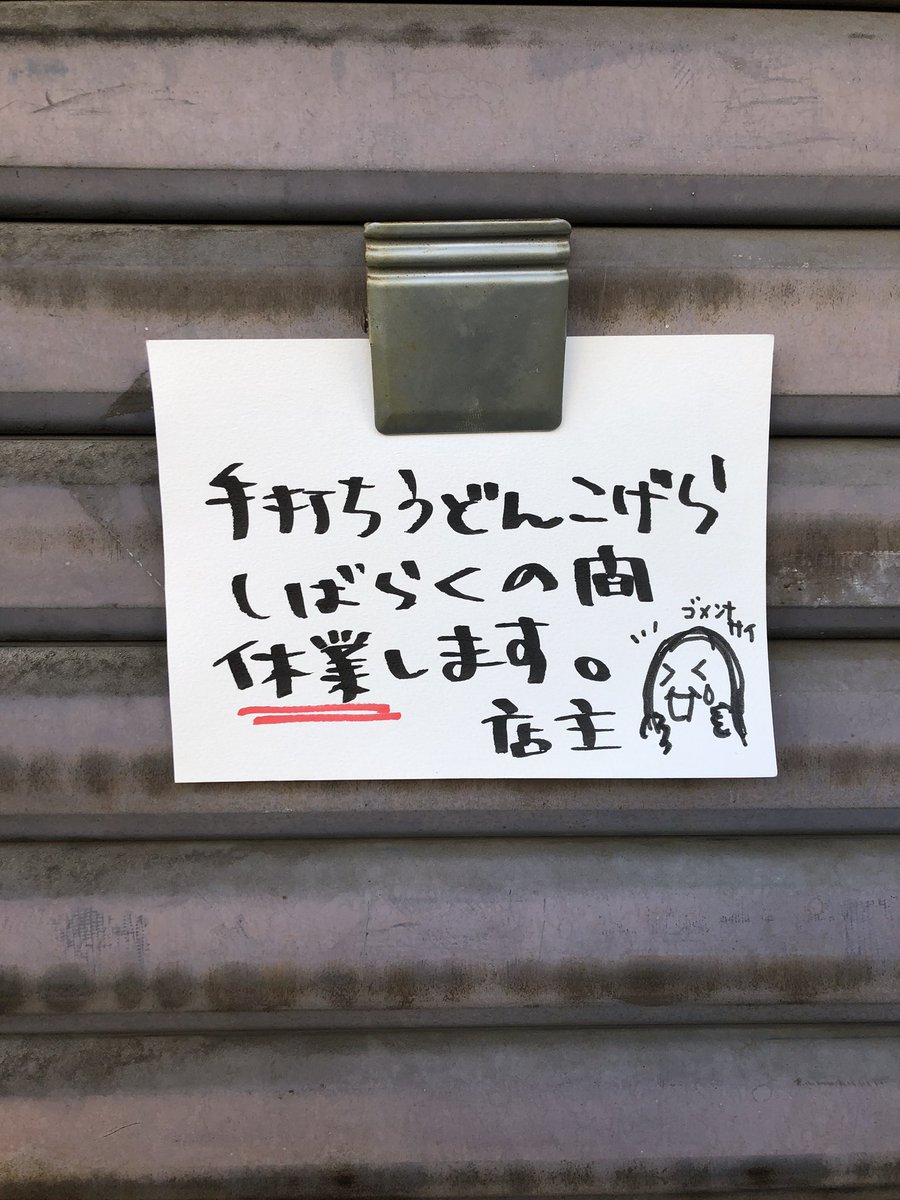 手打ちうどんこげら
しばらくの間
休業します。
店主
ゴメンナ
サイ